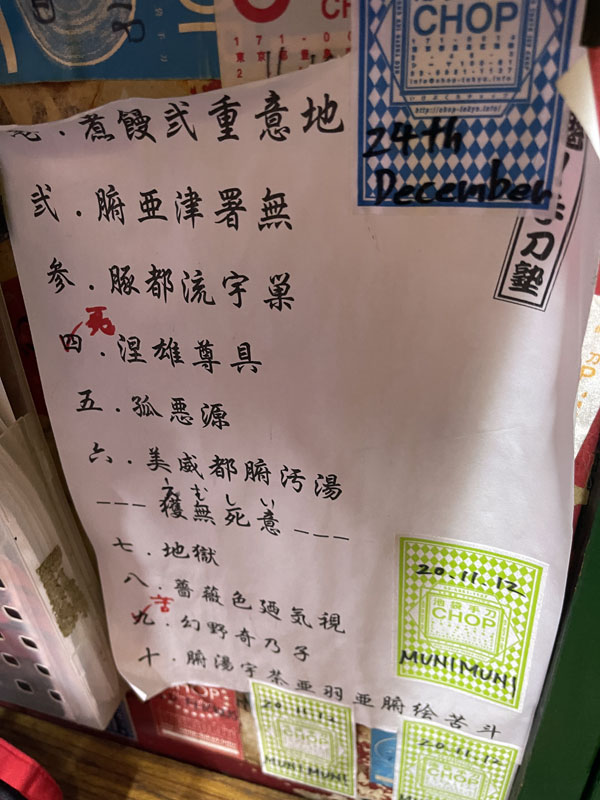 CHOP
171-00
東京都豊
CHOP
http://chop-tokyo.info/
24th
December
手刀塾
煮饅弐重意地
弐．腑亜津署無
参．豚都流宇巣
死
四．涅雄尊具
五．孤悪源
六．美威都腑汚湯
えむしい
---獲無死意---
七．地獄
八．薔薇色廼気視
苦
九．幻野奇乃子
十．腑湯宇茶亜羽亜腑絵苦斗
20.11.12
池袋手刀
CHOP
MUNIMUNI
CHOP
20.11.12
CHOP
MUNIMUNI
20.11.12
CHOP